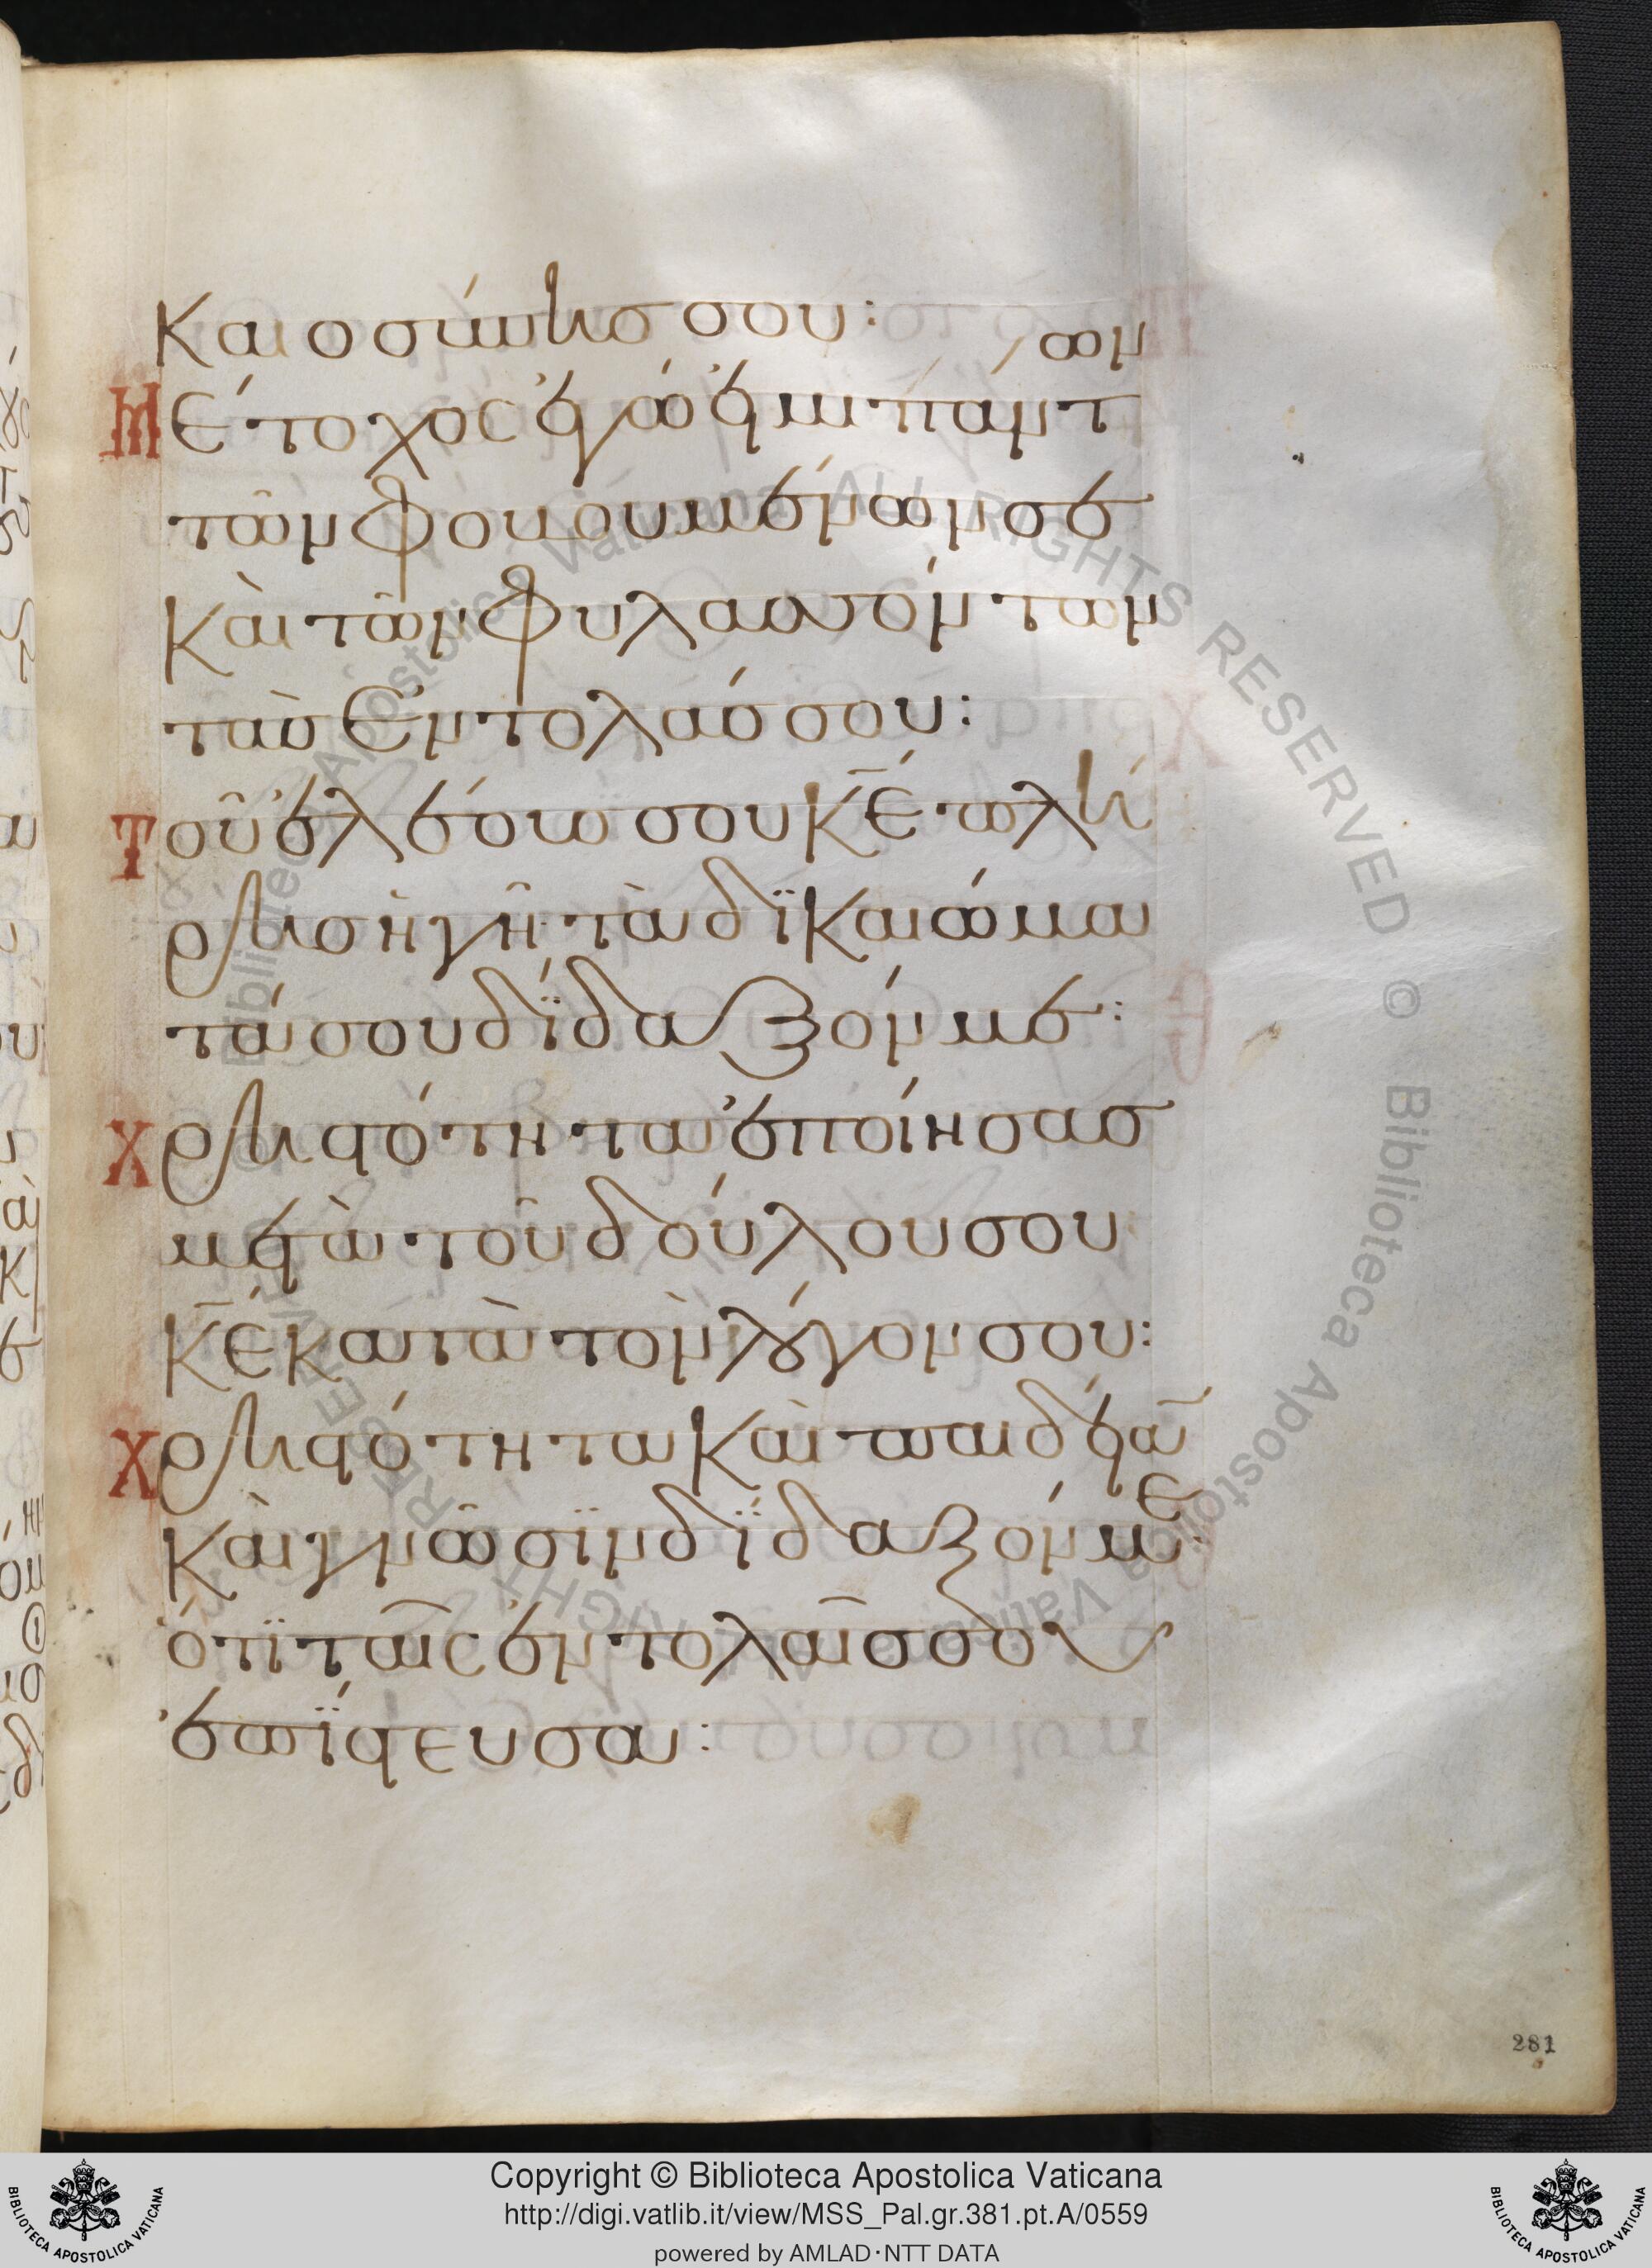 καιοσύνης σου:
Μέτοχος ἐγώ εἰμι πάντων
τῶν φοβουμένων σε
καὶ τῶν φυλασσόντων
τὰς ἐντολάς σου:
Τοῦ ἐλέους σου κ̅ε̅ πλή
ρης ἡ γῆ· τὰ δϊκαιώμα
τά σου δίδαξόν με:
Χρηστότητα ἐποίησας
μετὰ τοῦ δούλου σου
κ̅ε̅ κατὰ τὸν λόγον σου:
Χρηστότητα καὶ παιδείαν
καὶ γνῶσϊν δίδαξόν με:
ὅτϊ ταῖς ἐντολαῖς σου
ἐπίστευσα:
281
Copyright © Biblioteca Apostolica Vaticana
http://digi.vatlib.it/view/MSS_Pal.gr.381.pt.A/0559
powered by AMLAD·NTT DATA
BIBLIOTECA APOSTOLICA VATICANA
BIBLIOTECA APOSTOLICA VATICANA
Biblioteca Apostolica Vaticana ALL RIGHTS RESERVED © Biblioteca Apostolica Vaticana ALL RIGHTS RESERVED ©